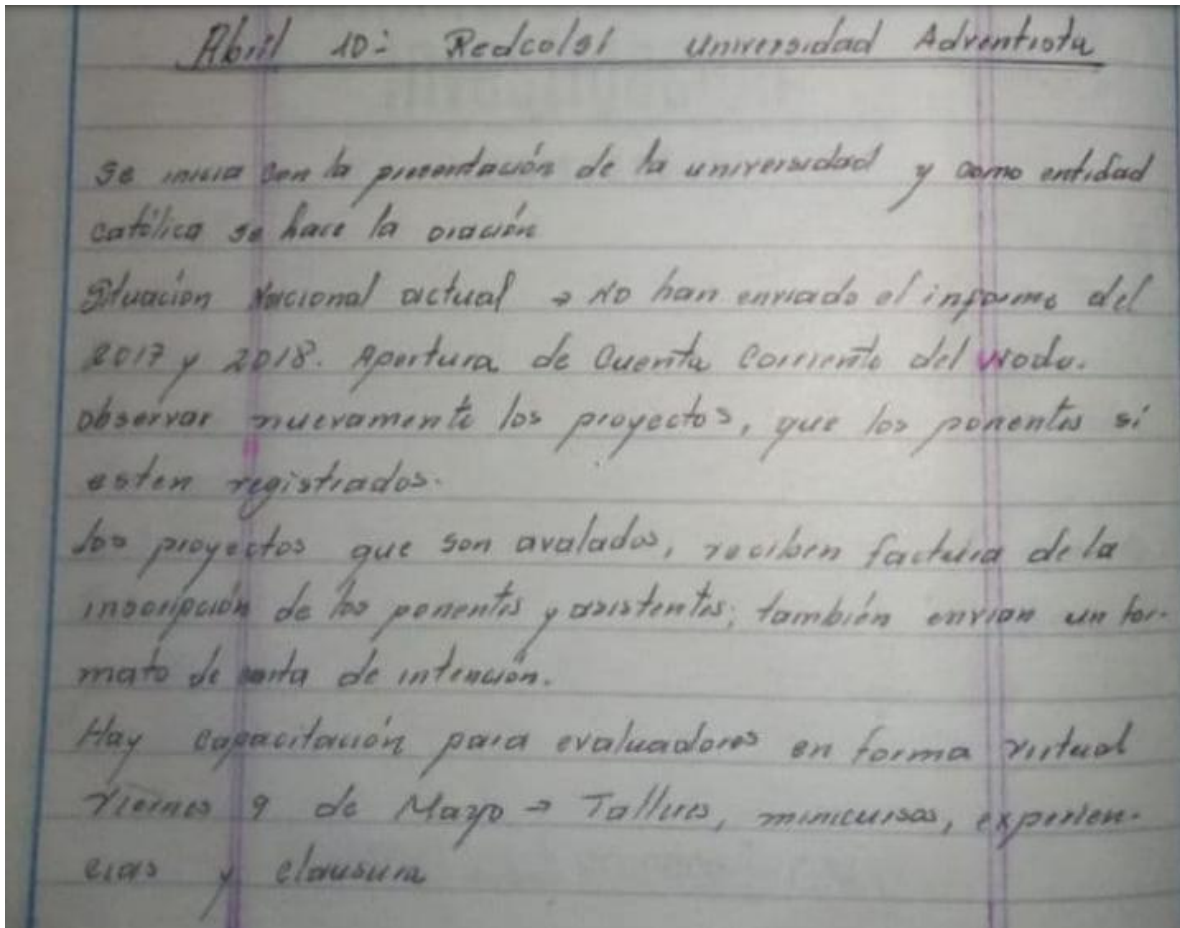 Abril 10: Redcolsi Universidad Adventista
Se inicia con la presentación de la universidad y como entidad
católica se hace la oración
Situación Nacional actual → No han enviado el informe del
2017 y 2018. Apertura de Cuenta Corriente del Nodo.
Observar nuevamente los proyectos, que los ponentes si
esten registrados.
Los proyectos que son avalados, reciben factura de la
inscripción de los ponentes y asistentes; también envían un for-
mato de carta de intención.
Hay capacitación para evaluadores en forma virtual
Viernes 9 de Mayo → Talleres, minicursos, experien-
cias y clausura